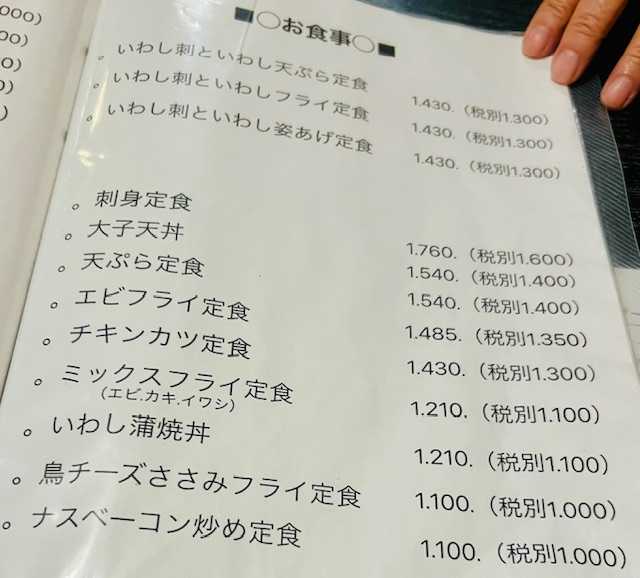 ■○お食事○■
。いわし刺といわし天ぷら定食 1.430.（税別1.300）
。いわし刺といわしフライ定食 1.430.（税別1.300）
。いわし刺といわし姿あげ定食 1.430.（税別1.300）
。刺身定食 1.760.（税別1.600）
。大子天丼 1.540.（税別1.400）
。天ぷら定食 1.540.（税別1.400）
。エビフライ定食 1.485.（税別1.350）
。チキンカツ定食 1.430.（税別1.300）
。ミックスフライ定食 1.210.（税別1.100）
（エビ.カキ.イワシ）
。いわし蒲焼丼 1.210.（税別1.100）
。鳥チーズささみフライ定食 1.100.（税別1.000）
。ナスベーコン炒め定食 1.100.（税別1.000）